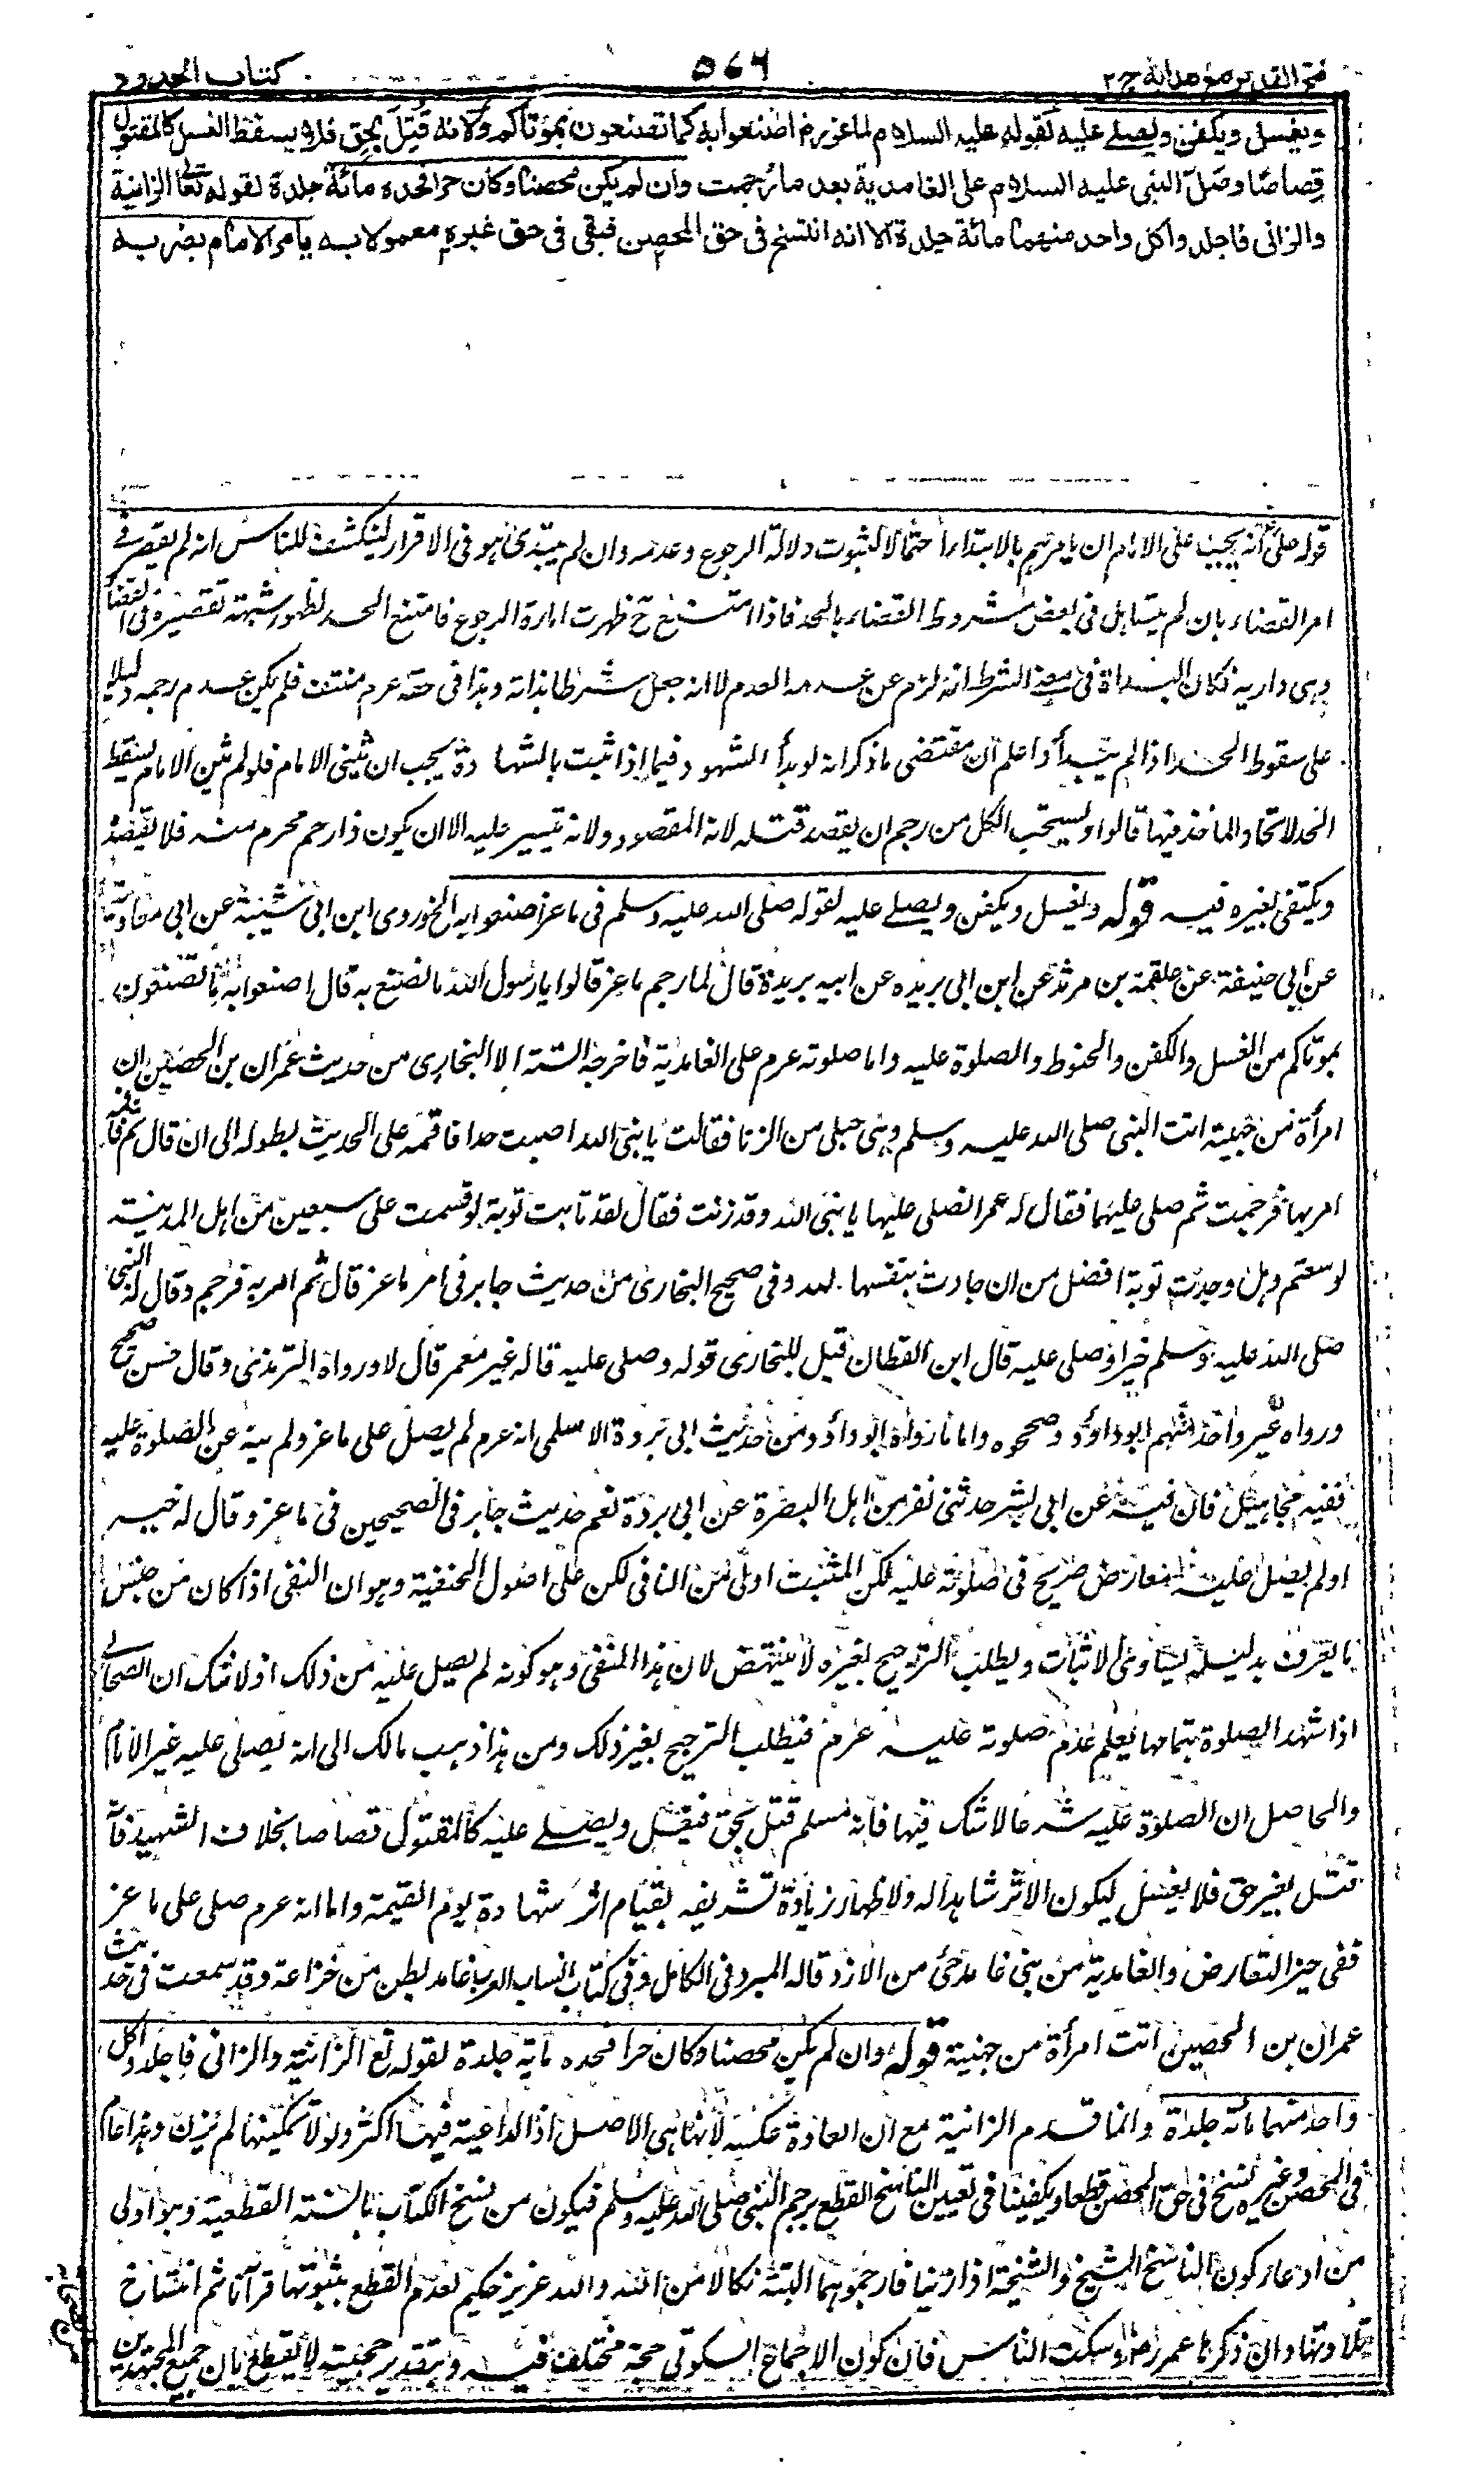 فتح القدير مع هداية ج ٢
٥٦٦
كتاب الحدود
ويغسل ويكفن ويصلے عليه لقوله عليه السلام لماعزرض اصنعوا به كما تصنعون بموتاكم ولانه قُتِلَ بحقٍ فلا يسقط الغسل كالمقتول
قِصاصًا وصَلّى النبى عليه السلام على الغامدية بعد ما رُجمت وان لم يكن محصنا وكان حرا فحده مائة جلدة لقوله تعالى الزانية
والزانى فاجلدوا كل واحد منهما مائة جلدة الا انه انتسخ فى حق المحصن فبقى فى حق غيره معمولا به يامر الامام بضربه
قوله على انه يجب على الامام ان يامرهم بالابتداء احتمالا لثبوت دلالة الرجوع وعدمه وان لم يبتدئ هو فى الاقرار لينكشف للناس انه لم يقصر فى
امر القضاء بان لم يتساهل فى بعض شروط القضاء بالحد فاذا امتنع ح ظهرت امارة الرجوع فامتنع الحد لظهور شبهة تقصيره فى القضاء
وهى دارية فكان البداءة فى معنے الشرط انه لزم عن عدمه العدم لا انه جعل شرطا بذاته وهذا فى حقه عرم منتف فلم يكن عدم رجمه دليلا
على سقوط الحد اذا لم يبتدأ واعلم ان مقتضى ما ذكر انه لو بدأ الشهود فيما اذا ثبت بالشهادة يجب ان يثنى الامام فلو لم يثن الامام يسقط
الحد لاتحاد الماخذ فيها قالوا ويستحب لكل من رجم ان يقصد قتله لانه المقصود ولانه تيسير عليه الا ان يكون ذا رحم محرم منه فلا يقصد
ويكتفى بغيره فيه قوله ويغسل ويكفن ويصلے عليه لقوله صلى الله عليه وسلم فى ماعز اصنعوا به الخ وروى ابن ابى شيبة عن ابى معاوية
عن ابى حنيفة عن علقمة بن مرثد عن ابن ابى بريده عن ابيه بريدة قال لما رجم ماعز قالوا يا رسول الله ما نصنع به قال اصنعوا به ما تصنعون
بموتاكم من الغسل والكفن والحنوط والصلوة عليه واما صلوته عرم على الغامدية فاخرجه الستة الا البخارى من حديث عمران بن الحصين ان
امرأة من جهينة اتت النبى صلى الله عليه وسلم وهى حبلى من الزنا فقالت يا نبى الله اصبت حدا فاقمه على الحديث بطوله الى ان قال ثم
امر بها فرجمت ثم صلى عليها فقال له عمر اتصلى عليها يا نبى الله وقد زنت فقال لقد تابت توبة لو قسمت على سبعين من اهل المدينة
لوسعتهم وهل وجدت توبة افضل من ان جادت بنفسها لله وفى صحيح البخارى من حديث جابر فى امر ماعز قال ثم امر به فرجم وقال له النبى
صلى الله عليه وسلم خيرا وصلى عليه قال ابن القطان قيل للبخارى قوله وصلى عليه قاله غير معمر قال لا ورواه الترمذى وقال حسن صحيح
ورواه غير واحد منهم ابوداؤد وصححوه واما ما رواه ابوداؤد من حديث ابى بردة الاسلمى انه عرم لم يصل على ماعز ولم ينه عن الصلوة عليه
ففيه مجاهيل فان فيه عن ابى بشر حدثنى نفر من اهل البصرة عن ابى بردة نعم حديث جابر فى الصحيحين فى ماعز وقال له خير
او لم يصل عليه معارض صريح فى صلوته عليه لكن المثبت اولى من النافى لكن على اصول الحنفية وهو ان النفى اذا كان من جنس
ما يعرف بدليله يساوى الاثبات ويطلب الترجيح بغيره لا ينتهض لان هذا المنفى وهو كونه لم يصل عليه من ذلك اذ لا شك ان الصحابى
اذا شهد الصلوة بتمامها يعلم عدم صلوته عليه عرم فيطلب الترجيح بغير ذلك ومن هذا ذهب مالك الى انه يصلى عليه غير الامام
والحاصل ان الصلوة عليه شرعا لا شك فيها فانه مسلم قتل بحق فيغسل ويصلے عليه كالمقتول قصاصا بخلاف الشهيد فانه
قتل بغير حق فلا يغسل ليكون الاثر شاهدا له ولاظهار زيادة تشريفه بقيام اثر شهادة يوم القيمة واما انه عرم صلى على ماعز
ففى حيز التعارض والغامدية من بنى غامد حى من الازد قاله المبرد فى الكامل وفى كتاب انساب العرب غامد بطن من خزاعة وقد سمعت فى حديث
عمران بن الحصين اتت امرأة من جهنية قوله وان لم يكن محصنا وكان حرا فحده مائة جلدة لقوله تع الزانية والزانى فاجلدوا كل
واحد منهما مائة جلدة وانما قدم الزانية مع ان العادة عكسه لانها هى الاصل اذ الداعية فيها اكثر ولولا تمكينها لم يزن وهذا عام
فى المحصن وغيره نسخ فى حق المحصن قطعا ويكفينا فى تعيين الناسخ القطع برجم النبى صلى الله عليه وسلم فيكون من نسخ الكتاب بالسنة القطعية وهو اولى
من ادعاء كون الناسخ الشيخ والشيخة اذا زنيا فارجموهما البتة نكالا من الله والله عزيز حكيم لعدم القطع بثبوتها قرآنا ثم انتساخ
تلاوتها وان ذكرها عمر رض وسكت الناس فان كون الاجماع السكوتى حجة مختلف فيه وبتقدير حجيته لا يقطع بان جميع المجتهدين